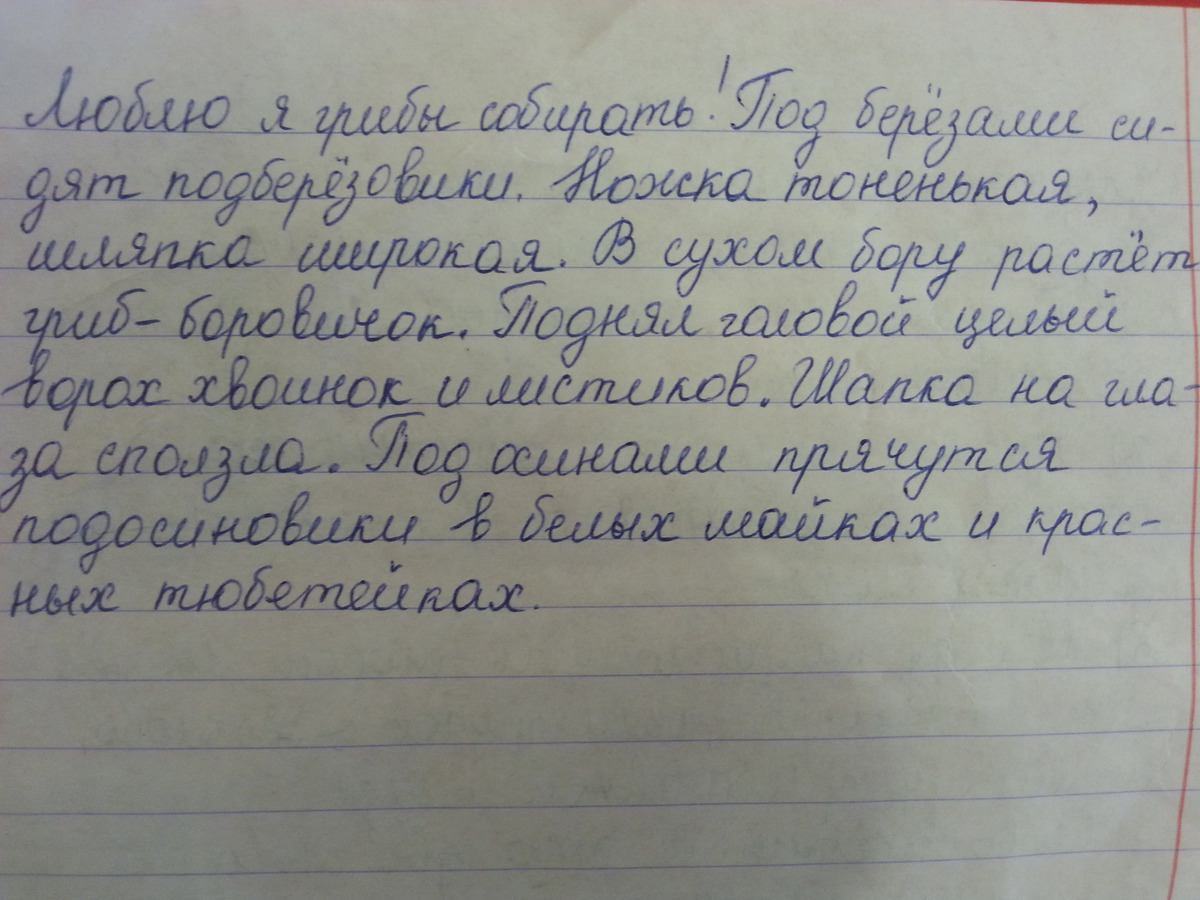 Люблю я грибы собирать! Под берёзами си-
дят подберёзовики. Ножка тоненькая,
шляпка широкая. В сухом бору растёт
гриб-боровичок. Поднял головой целый
ворох хвоинок и листиков. Шапка на гла-
за сползла. Под осинами прячутся
подосиновики в белых майках и крас-
ных тюбетейках.